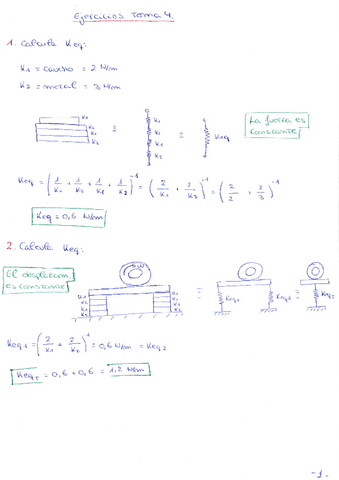 Ejercicios Tema 4.
1. Calcula Keq:
K1 = caucho = 2 N/m
K2 = metal = 3 N/m
K1
K2
K1
K2
=
K1
K2
K1
K2
=
Keq
La fuerza es
constante
Keq = (1/K1 + 1/K2 + 1/K1 + 1/K2)^-1 = (2/K1 + 2/K2)^-1 = (2/2 + 2/3)^-1
Keq = 0,6 N/m
2. Calcula Keq:
El desplazam.
es constante
K1
K2
K1
K2
K1
K2
K1
K2
=
Keq1
Keq2
=
Keq T
Keq1 = (2/K1 + 2/K2)^-1 = 0,6 N/m = Keq2
KeqT = 0,6 + 0,6 = 1,2 N/m
-1-